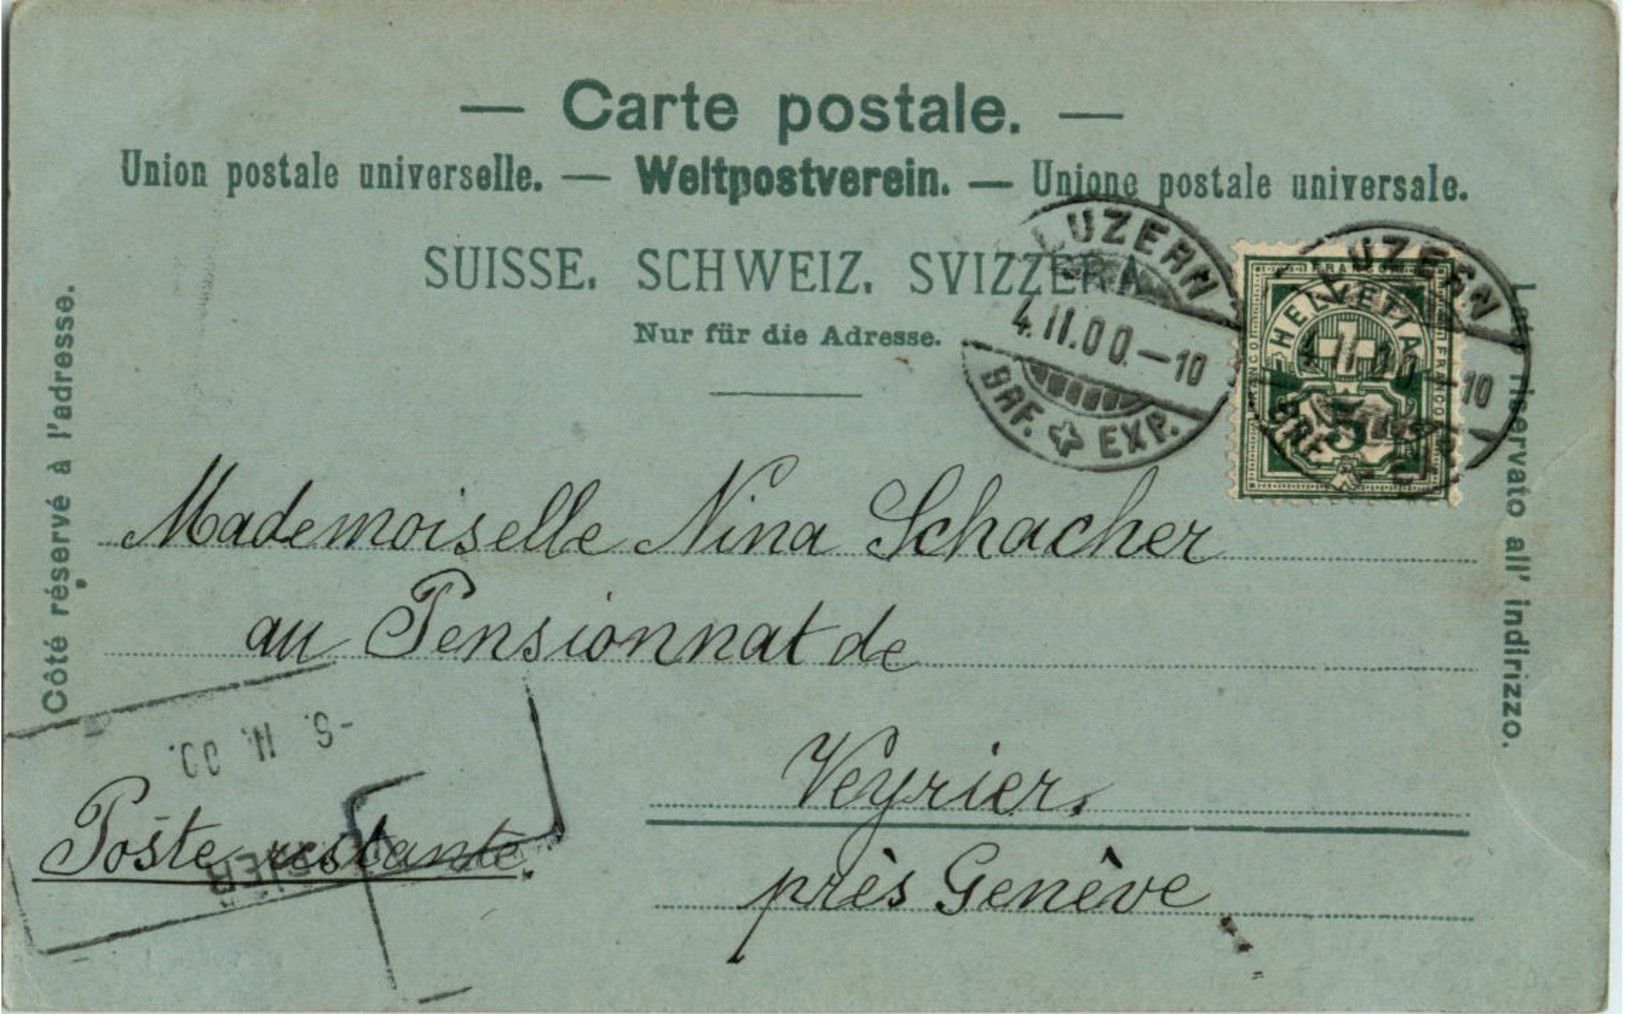 — Carte postale. —
Union postale universelle. — Weltpostverein. — Unione postale universale.
SUISSE. SCHWEIZ. SVIZZERA
Nur für die Adresse.
Côté réservé à l'adresse.
riservato all' indirizzo.
LUZERN
4.II.00.–10
BRF. EXP.
LUZERN
II.00.–10
BRF. EXP.
FRANCO
HELVETIA
FRANCO
FRANCO
5
Mademoiselle Nina Schacher
au Pensionnat de
Veyrier,
près Genève
Poste restante.
-5. II. 00.